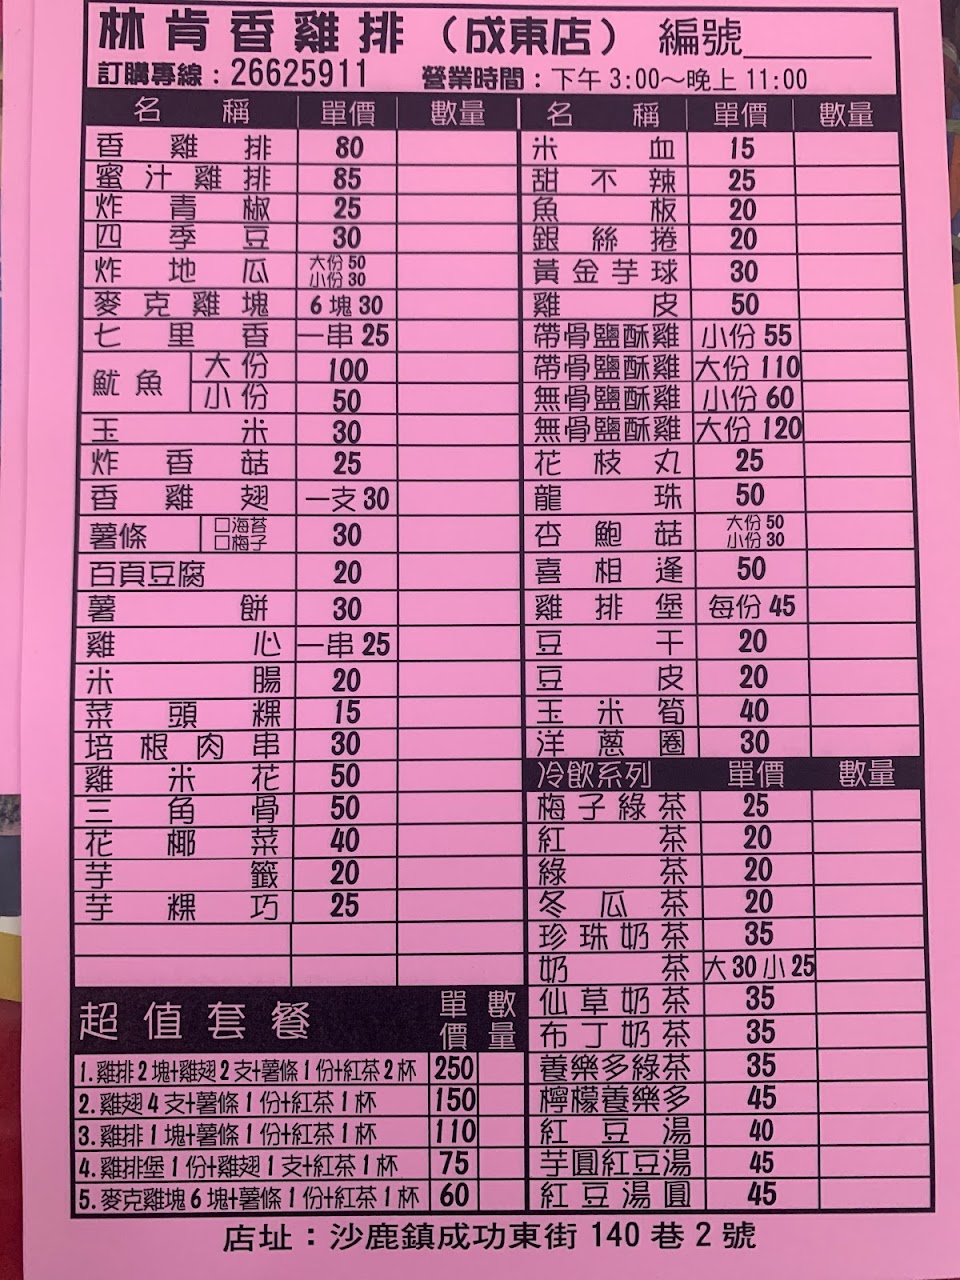 林肯香雞排（成東店） 編號
訂購專線：26625911 營業時間：下午 3:00～晚上 11:00
名稱 單價 數量
香雞排 80
蜜汁雞排 85
炸青椒 25
四季豆 30
炸地瓜 大份 50 小份 30
麥克雞塊 6 塊 30
七里香 一串 25
魷魚 大份 100
小份 50
玉米 30
炸香菇 25
香雞翅 一支 30
薯條 □海苔 □梅子 30
百頁豆腐 20
薯餅 30
雞心 一串 25
米腸 20
菜頭粿 15
培根肉串 30
雞米花 50
三角骨 50
花椰菜 40
芋籤 20
芋粿巧 25
超值套餐 單價 數量
1. 雞排 2 塊+雞翅 2 支+薯條 1 份+紅茶 2 杯 250
2. 雞翅 4 支+薯條 1 份+紅茶 1 杯 150
3. 雞排 1 塊+薯條 1 份+紅茶 1 杯 110
4. 雞排堡 1 份+雞翅 1 支+紅茶 1 杯 75
5. 麥克雞塊 6 塊+薯條 1 份+紅茶 1 杯 60
名稱 單價 數量
米血 15
甜不辣 25
魚板 20
銀絲捲 20
黃金芋球 30
雞皮 50
帶骨鹽酥雞 小份 55
帶骨鹽酥雞 大份 110
無骨鹽酥雞 小份 60
無骨鹽酥雞 大份 120
花枝丸 25
龍珠 50
杏鮑菇 大份 50 小份 30
喜相逢 50
雞排堡 每份 45
豆干 20
豆皮 20
玉米筍 40
洋蔥圈 30
冷飲系列 單價 數量
梅子綠茶 25
紅茶 20
綠茶 20
冬瓜茶 20
珍珠奶茶 35
奶茶 大 30 小 25
仙草奶茶 35
布丁奶茶 35
養樂多綠茶 35
檸檬養樂多 45
紅豆湯 40
芋圓紅豆湯 45
紅豆湯圓 45
店址：沙鹿鎮成功東街 140 巷 2 號